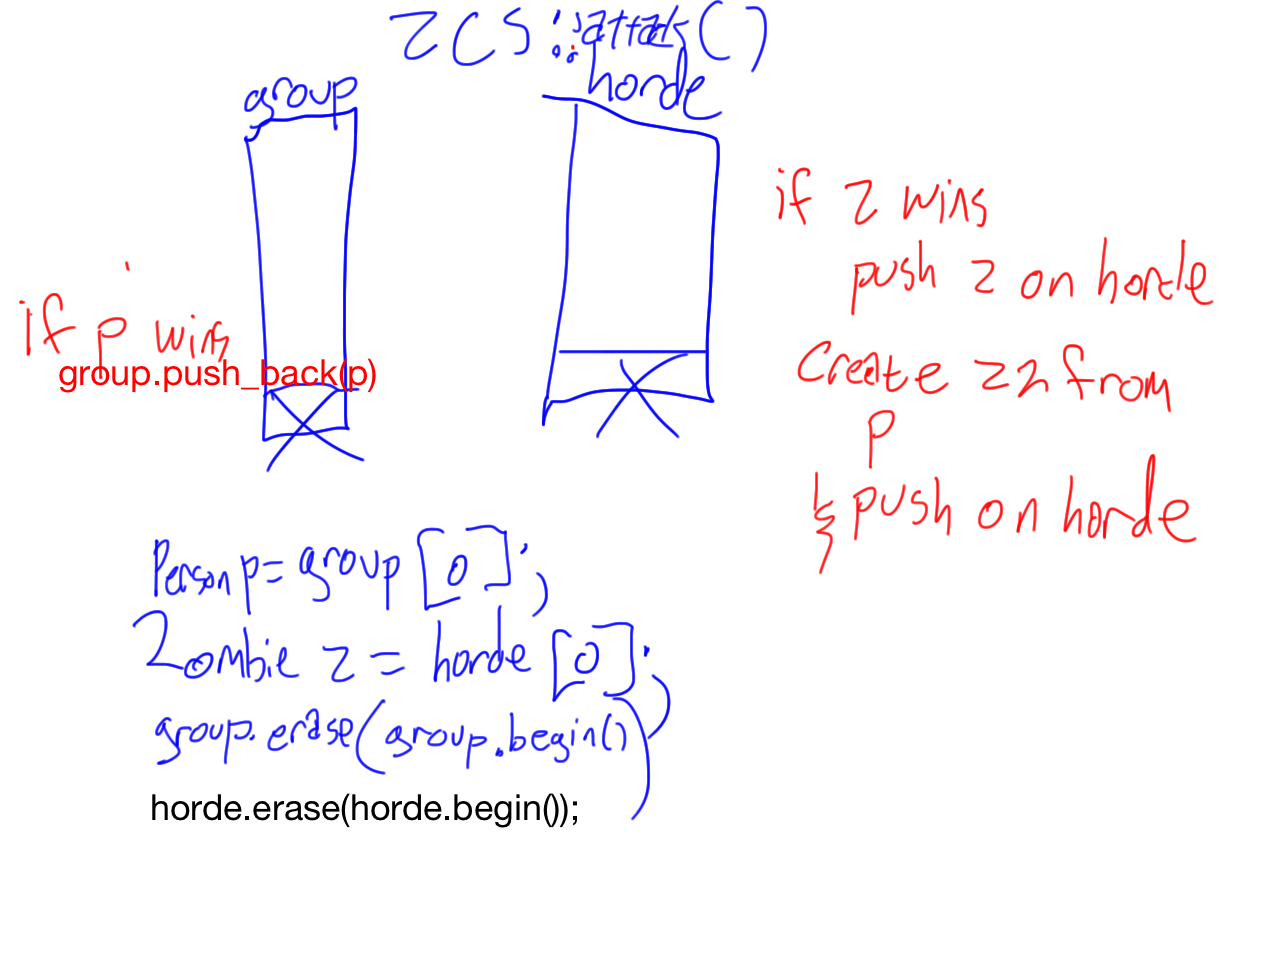 ZCS::attack()
group
horde
if z wins
push z on horde
if p wins
group.push_back(p)
Create z2 from
p
& push on horde
Person p = group[0];
Zombie z = horde[0];
group.erase(group.begin());
horde.erase(horde.begin());